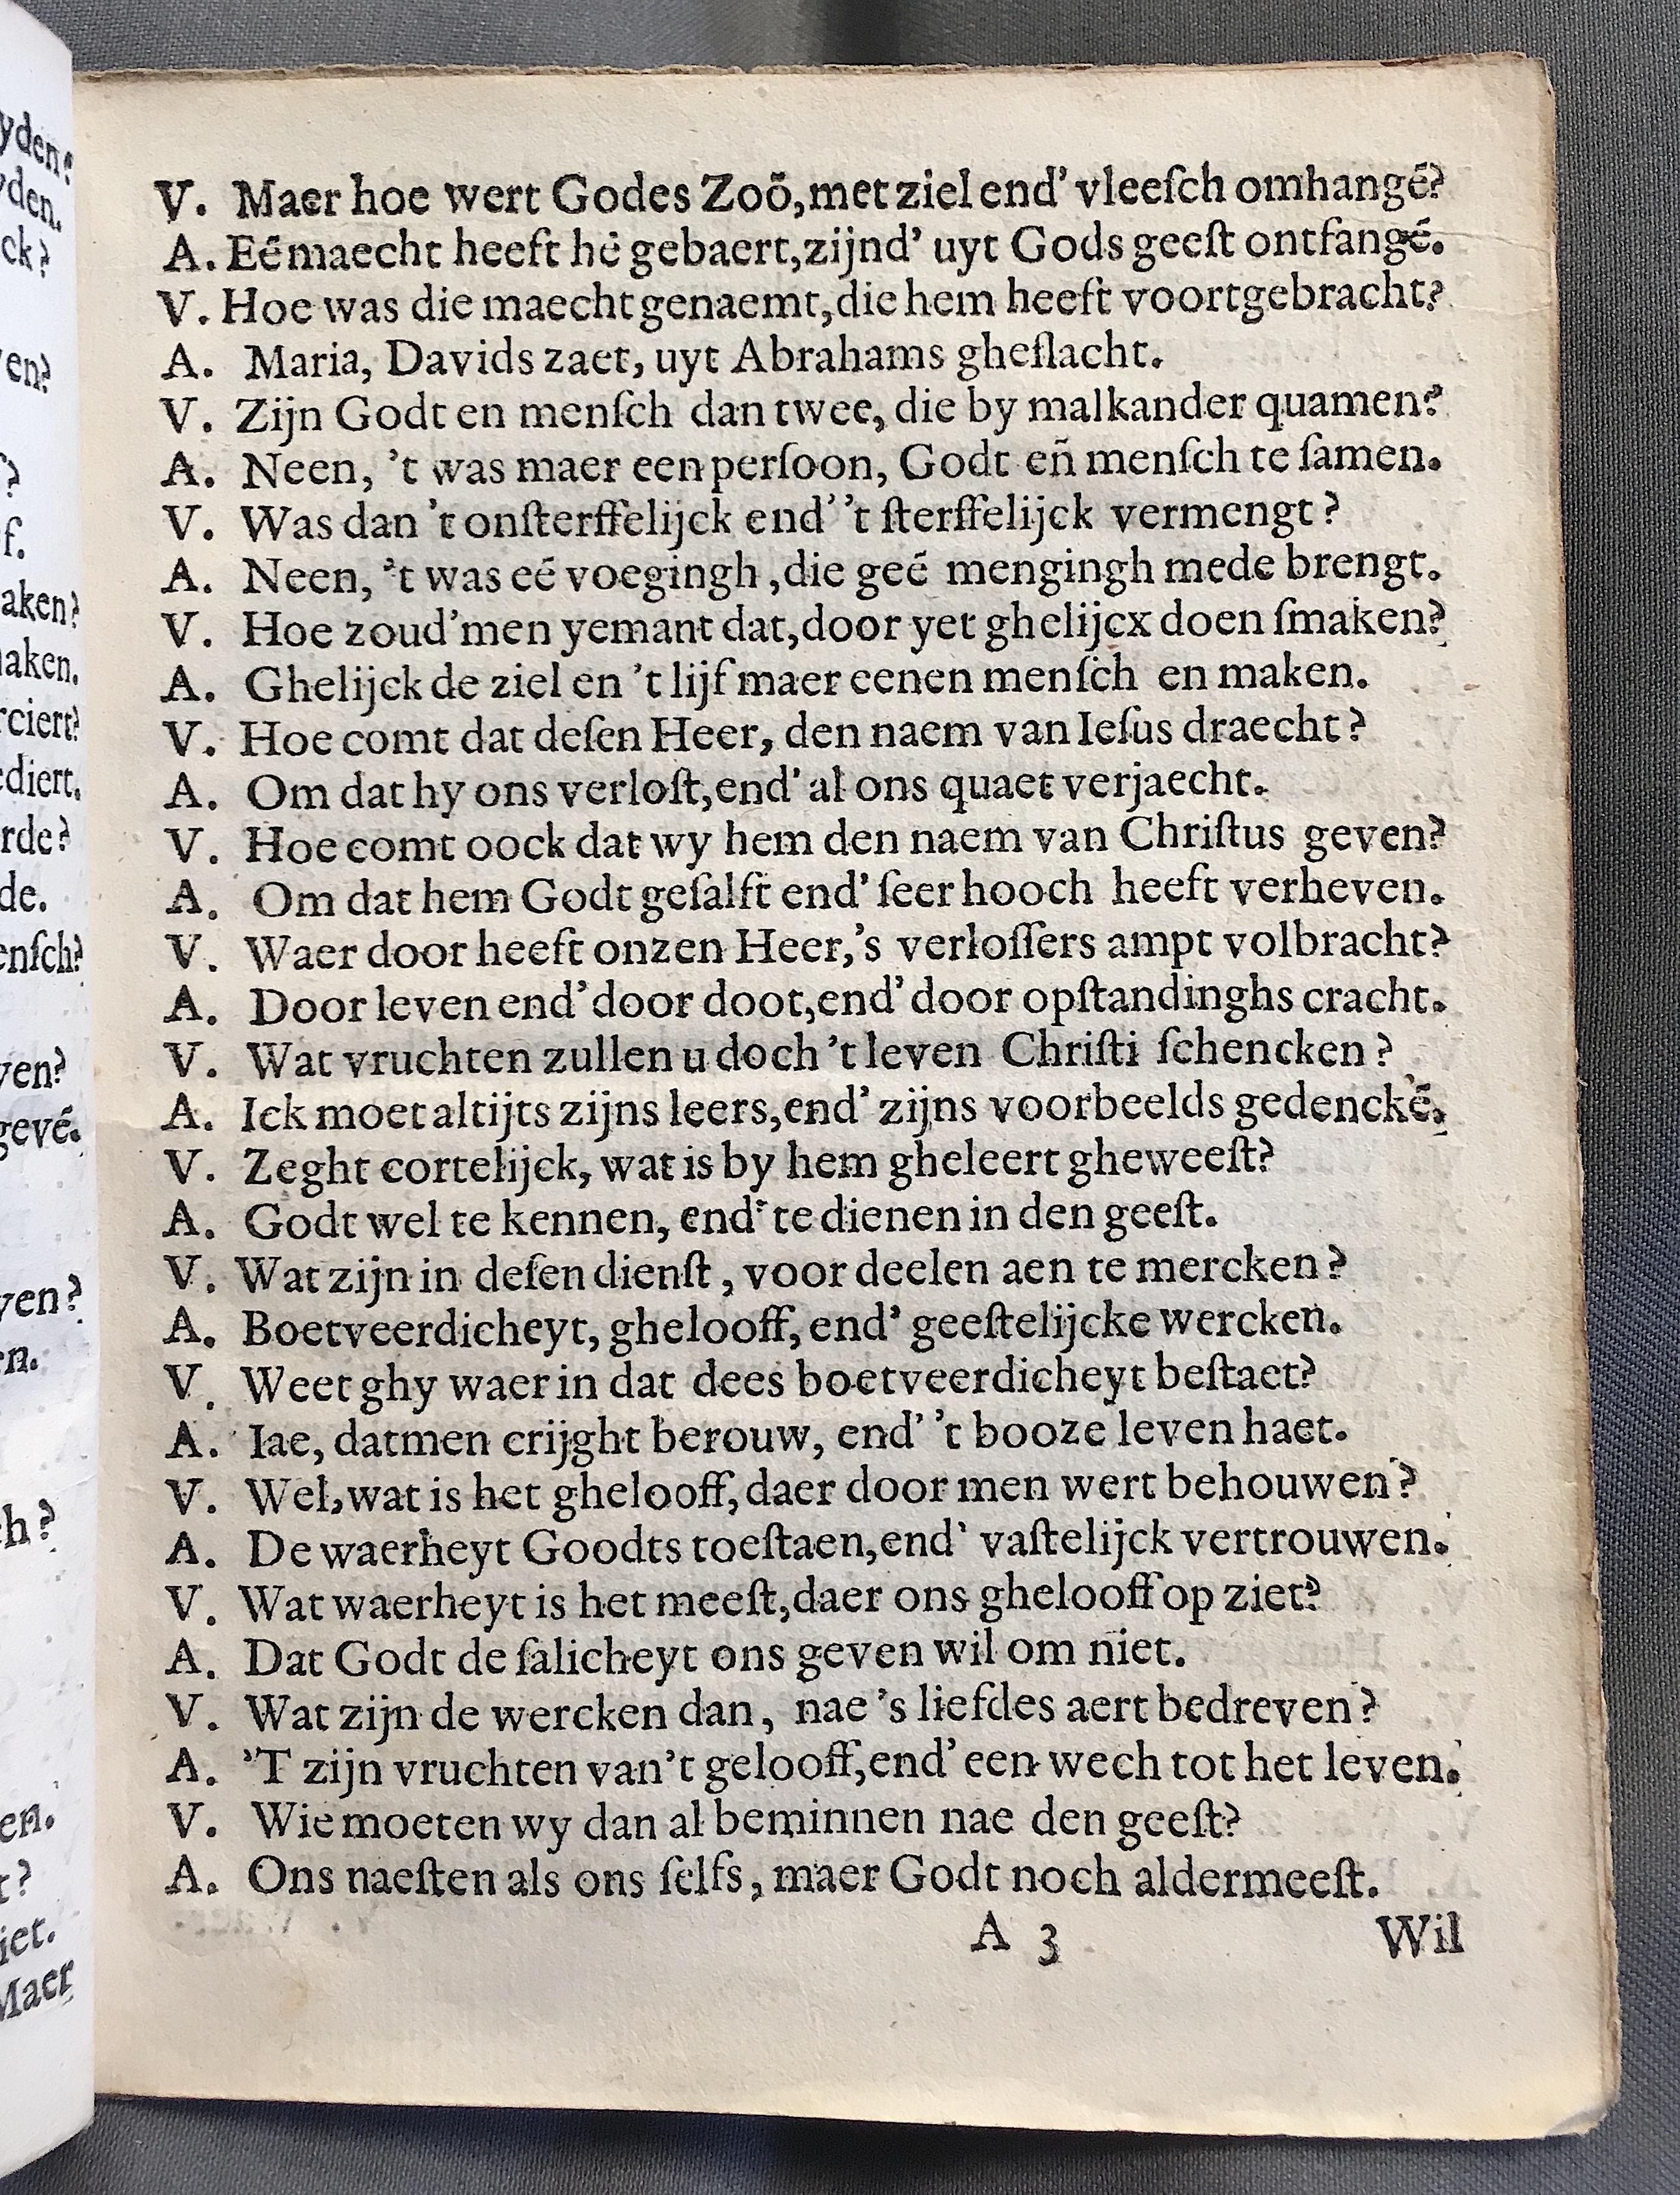 V. Maer hoe wert Godes Zoō, met ziel end' vleeſch omhangē?
A. Eē maecht heeft hē gebaert, zijnd' uyt Gods geeſt ontfangē.
V. Hoe was die maecht genaemt, die hem heeft voortgebracht?
A. Maria, Davids zaet, uyt Abrahams gheſlacht.
V. Zijn Godt en menſch dan twee, die by malkander quamen?
A. Neen, 't was maer een perſoon, Godt eñ menſch te ſamen.
V. Was dan 't onſterffelijck end' 't ſterffelijck vermengt?
A. Neen, 't was eē voegingh, die geē mengingh mede brengt.
V. Hoe zoud'men yemant dat, door yet ghelijcx doen ſmaken?
A. Ghelijck de ziel en 't lijf maer eenen menſch en maken.
V. Hoe comt dat deſen Heer, den naem van Ieſus draecht?
A. Om dat hy ons verloſt, end' al ons quaet verjaecht.
V. Hoe comt oock dat wy hem den naem van Chriſtus geven?
A. Om dat hem Godt geſalft end' ſeer hooch heeft verheven.
V. Waer door heeft onzen Heer, 's verloſſers ampt volbracht?
A. Door leven end' door doot, end' door opſtandinghs cracht.
V. Wat vruchten zullen u doch 't leven Chriſti ſchencken?
A. Ick moet altijts zijns leers, end' zijns voorbeelds gedenckē.
V. Zeght cortelijck, wat is by hem gheleert gheweeſt?
A. Godt wel te kennen, end' te dienen in den geeſt.
V. Wat zijn in deſen dienſt, voor deelen aen te mercken?
A. Boetveerdicheyt, ghelooff, end' geeſtelijcke wercken.
V. Weet ghy waer in dat dees boetveerdicheyt beſtaet?
A. Iae, datmen crijght berouw, end' 't booze leven haet.
V. Wel, wat is het ghelooff, daer door men wert behouwen?
A. De waerheyt Goodts toeſtaen, end' vaſtelijck vertrouwen.
V. Wat waerheyt is het meeſt, daer ons ghelooff op ziet?
A. Dat Godt de ſalicheyt ons geven wil om niet.
V. Wat zijn de wercken dan, nae 's liefdes aert bedreven?
A. 'T zijn vruchten van't gelooff, end' een wech tot het leven.
V. Wie moeten wy dan al beminnen nae den geeſt?
A. Ons naeſten als ons ſelfs, maer Godt noch aldermeeſt.
A 3 Wil